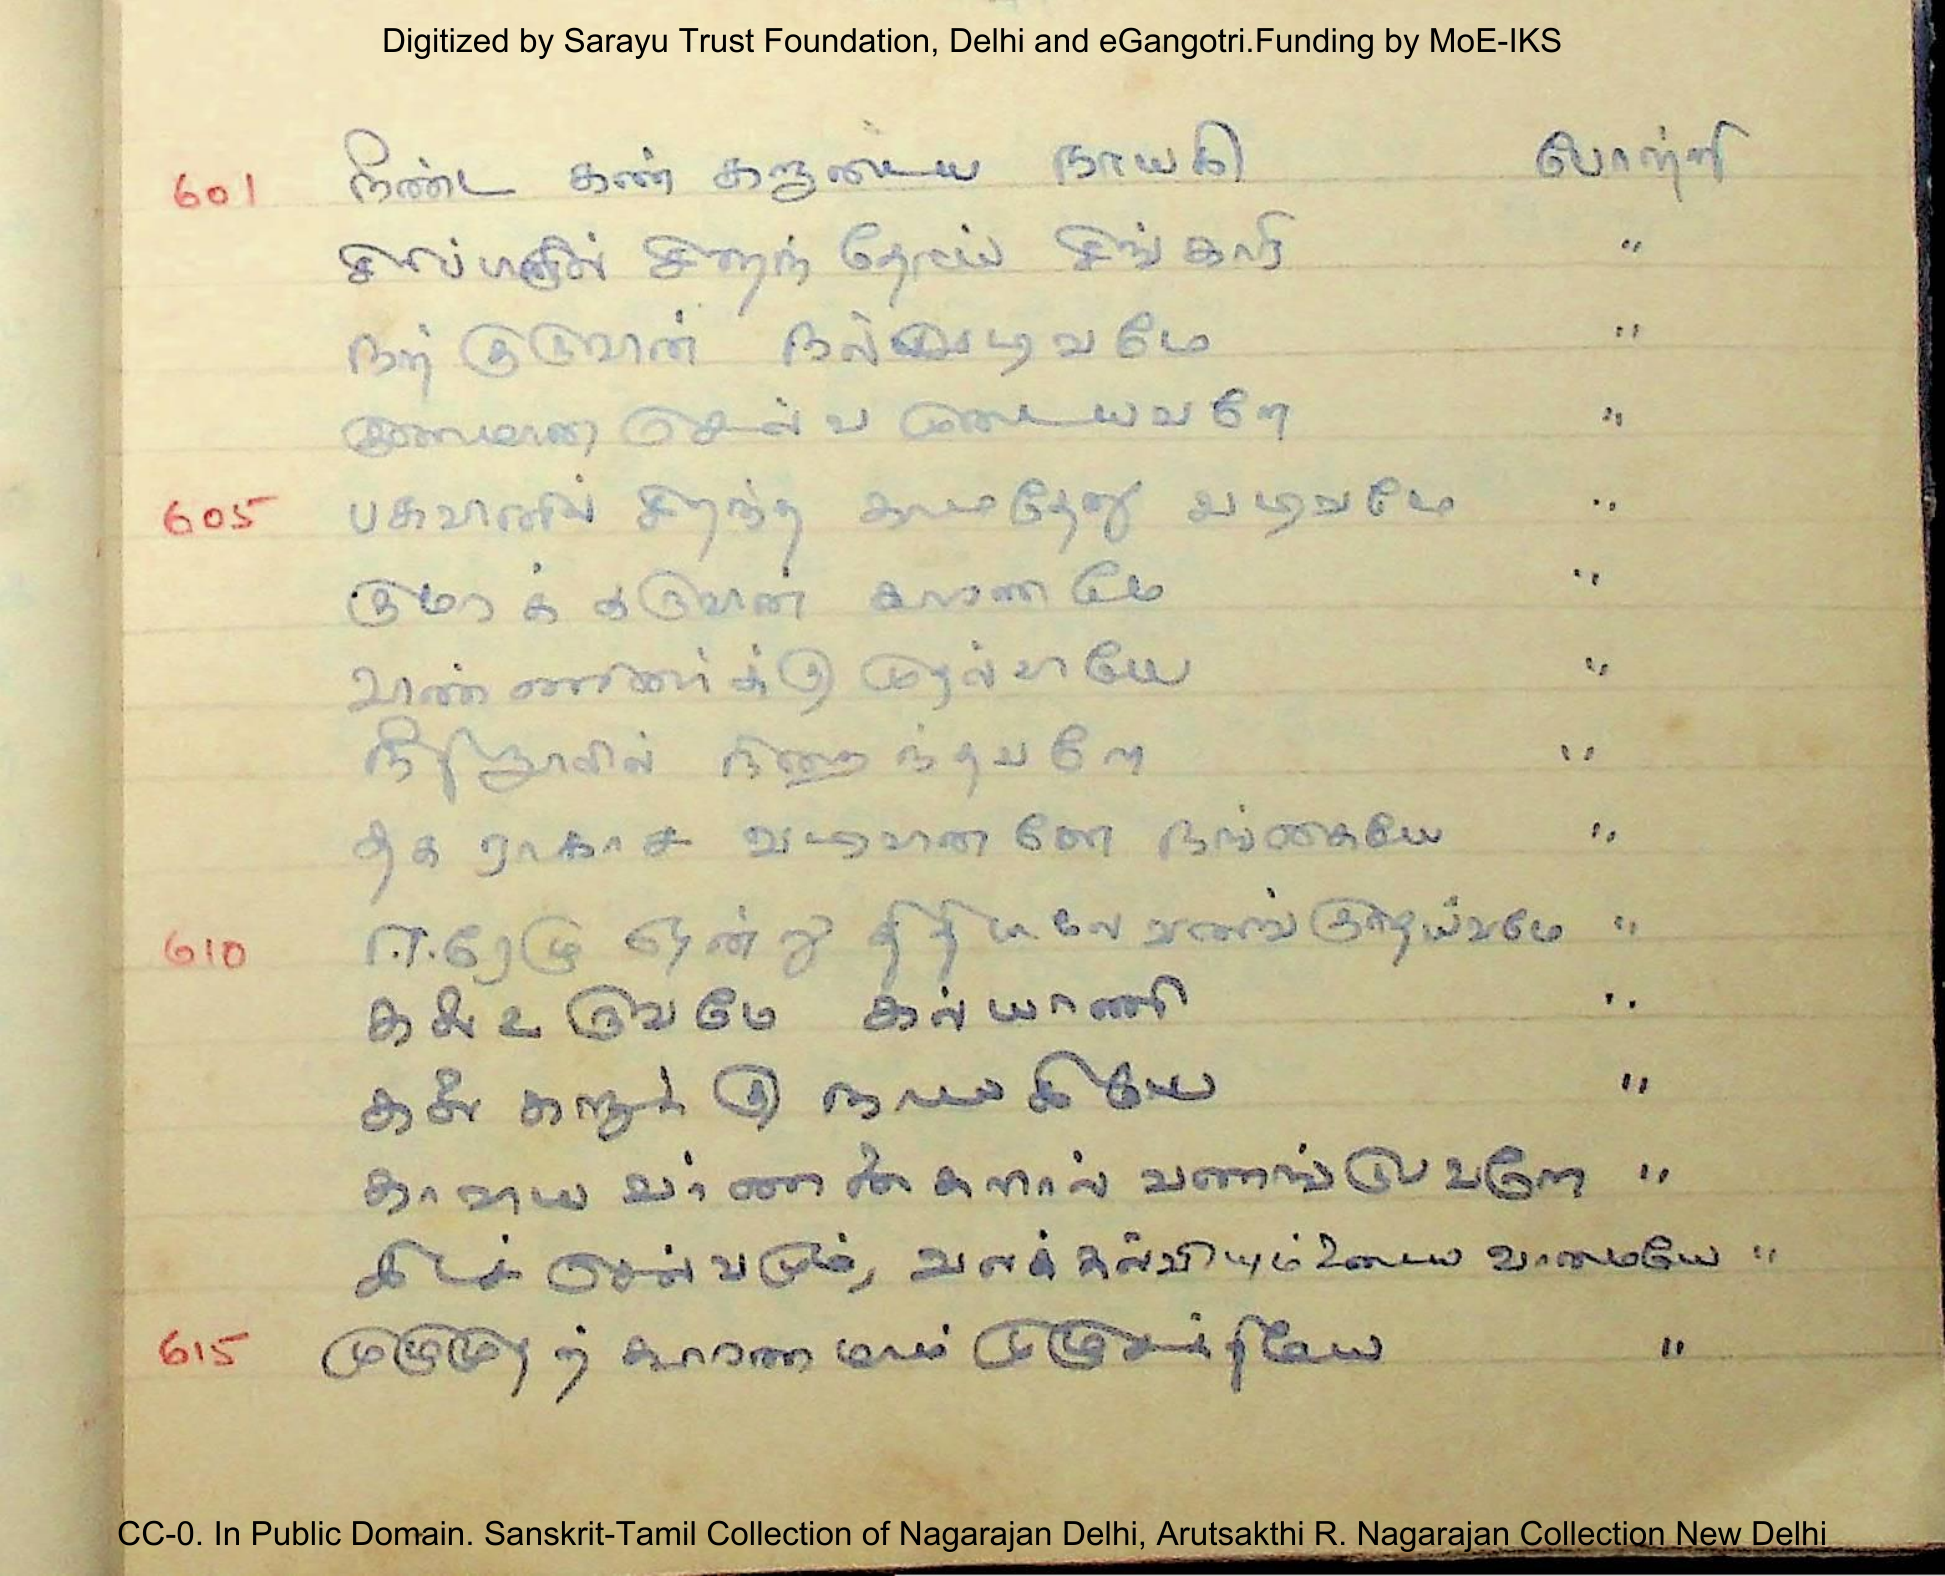 Digitized by Sarayu Trust Foundation, Delhi and eGangotri.Funding by MoE-IKS
601 நீண்ட கண் களுடைய நாயகி போற்றி
சிறந் தோய் சிங்காரி "
நற் குருவான் வடிவமே "
குணமான செல்வ முடையவளே "
605 பசுவானில் சிறந்த காமதேனு வடிவமே "
குமரக் கருவான் காரணமே "
முதல்வாயே "
நீதிநூலில் நிறைந்தவளே "
தக ராகாச வடிவான னே நங்கையே "
610 ஈரேழு வணங் குதெய்வமே "
உருவமே கல்யாணி "
களுக் கு நாயகியே "
காவிய வர்ணனைகளால் வணங்குபவளே "
செல்வமும், வளக் கல்வியும் வாமையே "
615 முழுமுதற் காரணமாம் முழுசக்தியே "
CC-0. In Public Domain. Sanskrit-Tamil Collection of Nagarajan Delhi, Arutsakthi R. Nagarajan Collection New Delhi